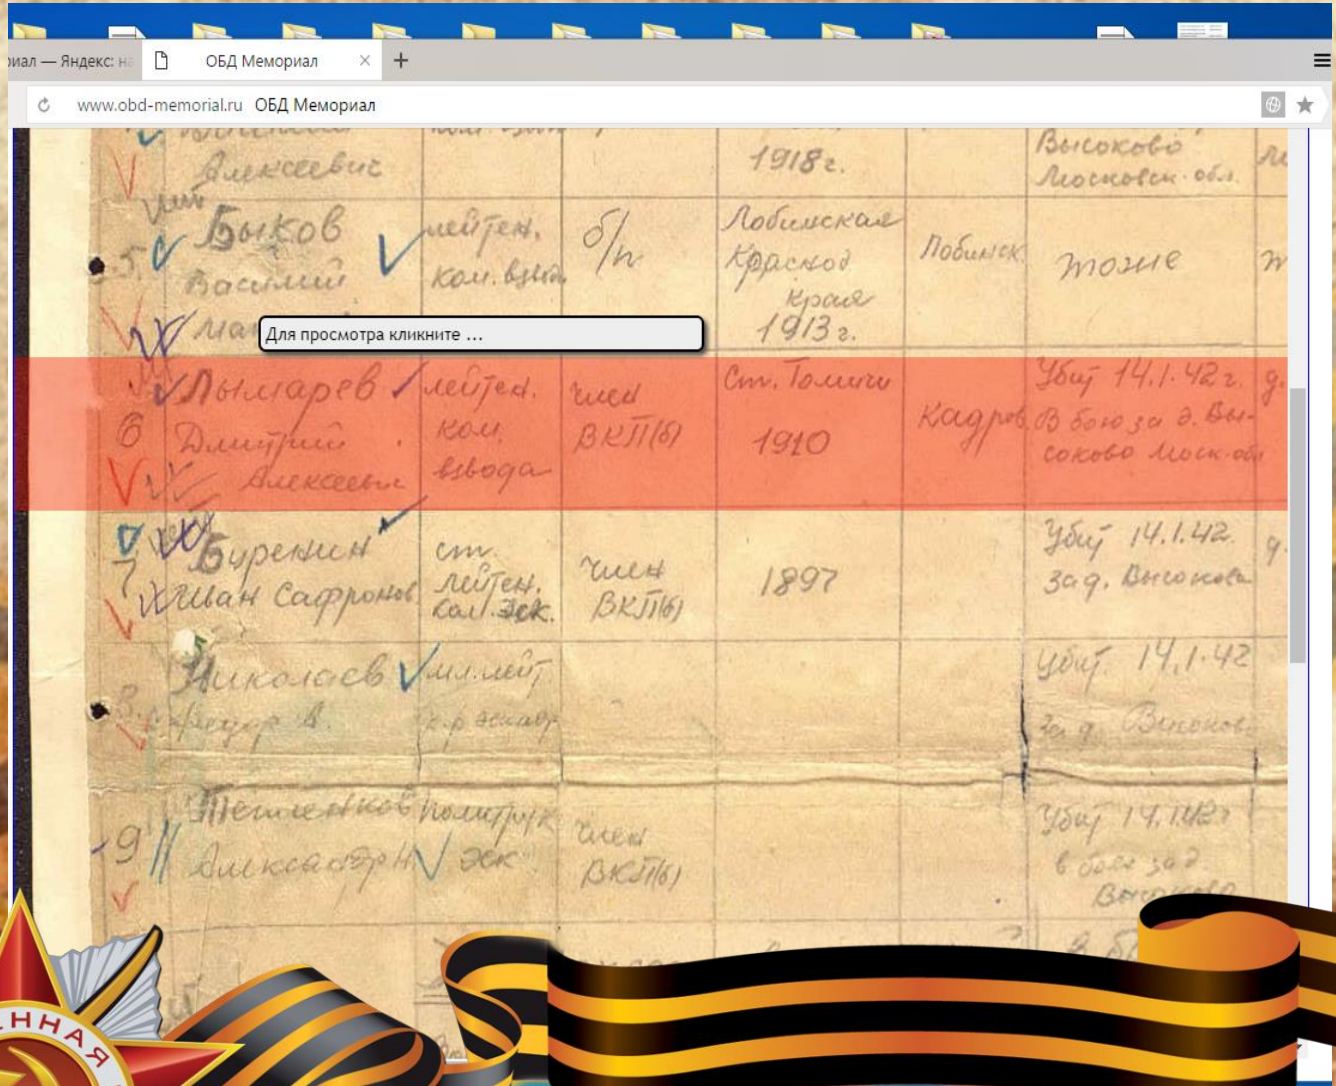 риал — Яндекс: на
ОБД Мемориал
www.obd-memorial.ru ОБД Мемориал
Алексеевич
1918 г.
Высоково
Московск. обл.
5. Быков
Василий
лейтен.
ком. взвода
б/п
Лобинская
Краснод
края
1913 г.
Лобинск.
тоже
Для просмотра кликните ...
6 Лымарев
Дмитрий
Алексеевич
лейтен.
ком.
взвода
член
ВКП(б)
Ст. Томичи
1910
Кадров.
Убит 14.1.42 г.
В бою за д. Вы-
соково Моск. обл
д.
7 Буренин
Иван Сафронов
ст.
лейтен.
ком. эск.
член
ВКП(б)
1897
Убит 14.1.42.
за д. Высоково
д.
8. Николаев
мл. лейт
Убит. 14.1.42
за д.
9
Александр Н
политрук
эск
член
ВКП(б)
Убит 14.1.42 г
в боях за д
Высоково
ЕННАЯ